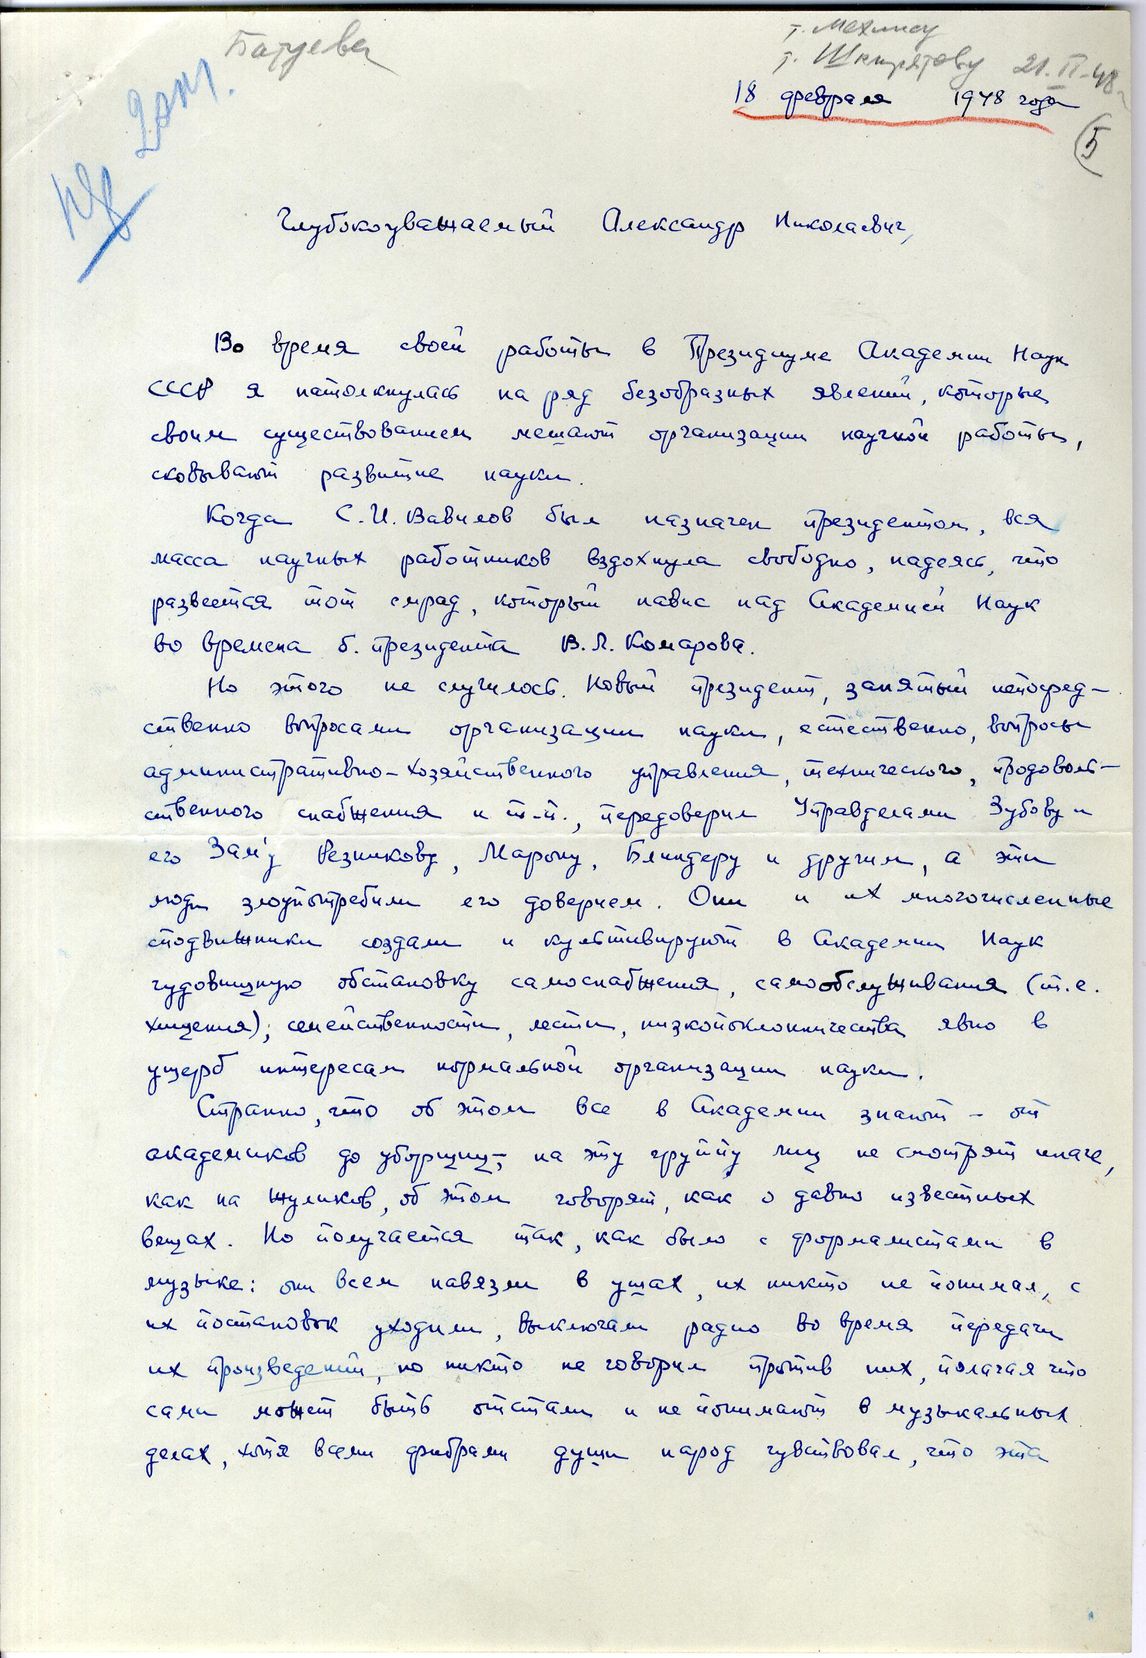 Батуева
т. Мехлису
т. Шкирятову 21.II.48 г.
18 февраля 1948 года
5
Глубокоуважаемый Александр Николаевич,
Во время своей работы в Президиуме Академии Наук
СССР я натолкнулась на ряд безобразных явлений, которые
своим существованием мешают организации научной работы,
сковывают развитие науки.
Когда С.И. Вавилов был назначен президентом, вся
масса научных работников вздохнула свободно, надеясь, что
развеется тот смрад, который навис над Академией Наук
во времена б. президента В.Л. Комарова.
Но этого не случилось. Новый президент, занятый непосред-
ственно вопросами организации науки, естественно, вопросы
административно-хозяйственного управления, технического, продоволь-
ственного снабжения и т.п., передоверил Управделами Зубову и
его Зам'у Резникову, Марону, Блиндеру и другим, а эти
люди злоупотребили его доверием. Они и их многочисленные
сподвижники создали и культивируют в Академии Наук
чудовищную обстановку самоснабжения, самообслуживания (т.е.
хищения); семейственности, лести, низкопоклонничества явно в
ущерб интересам нормальной организации науки.
Странно, что об этом все в Академии знают – от
академиков до уборщиц; на эту группу лиц не смотрят иначе,
как на жуликов, об этом говорят, как о давно известных
вещах. Но получается так, как было с формалистами в
музыке: они всем навязли в ушах, их никто не понимал, с
их постановок уходили, выключали радио во время передачи
их произведений, но никто не говорил против них, полагая что
сами может быть отстали и не понимают в музыкальных
делах, хотя всеми фибрами души народ чувствовал, что эта